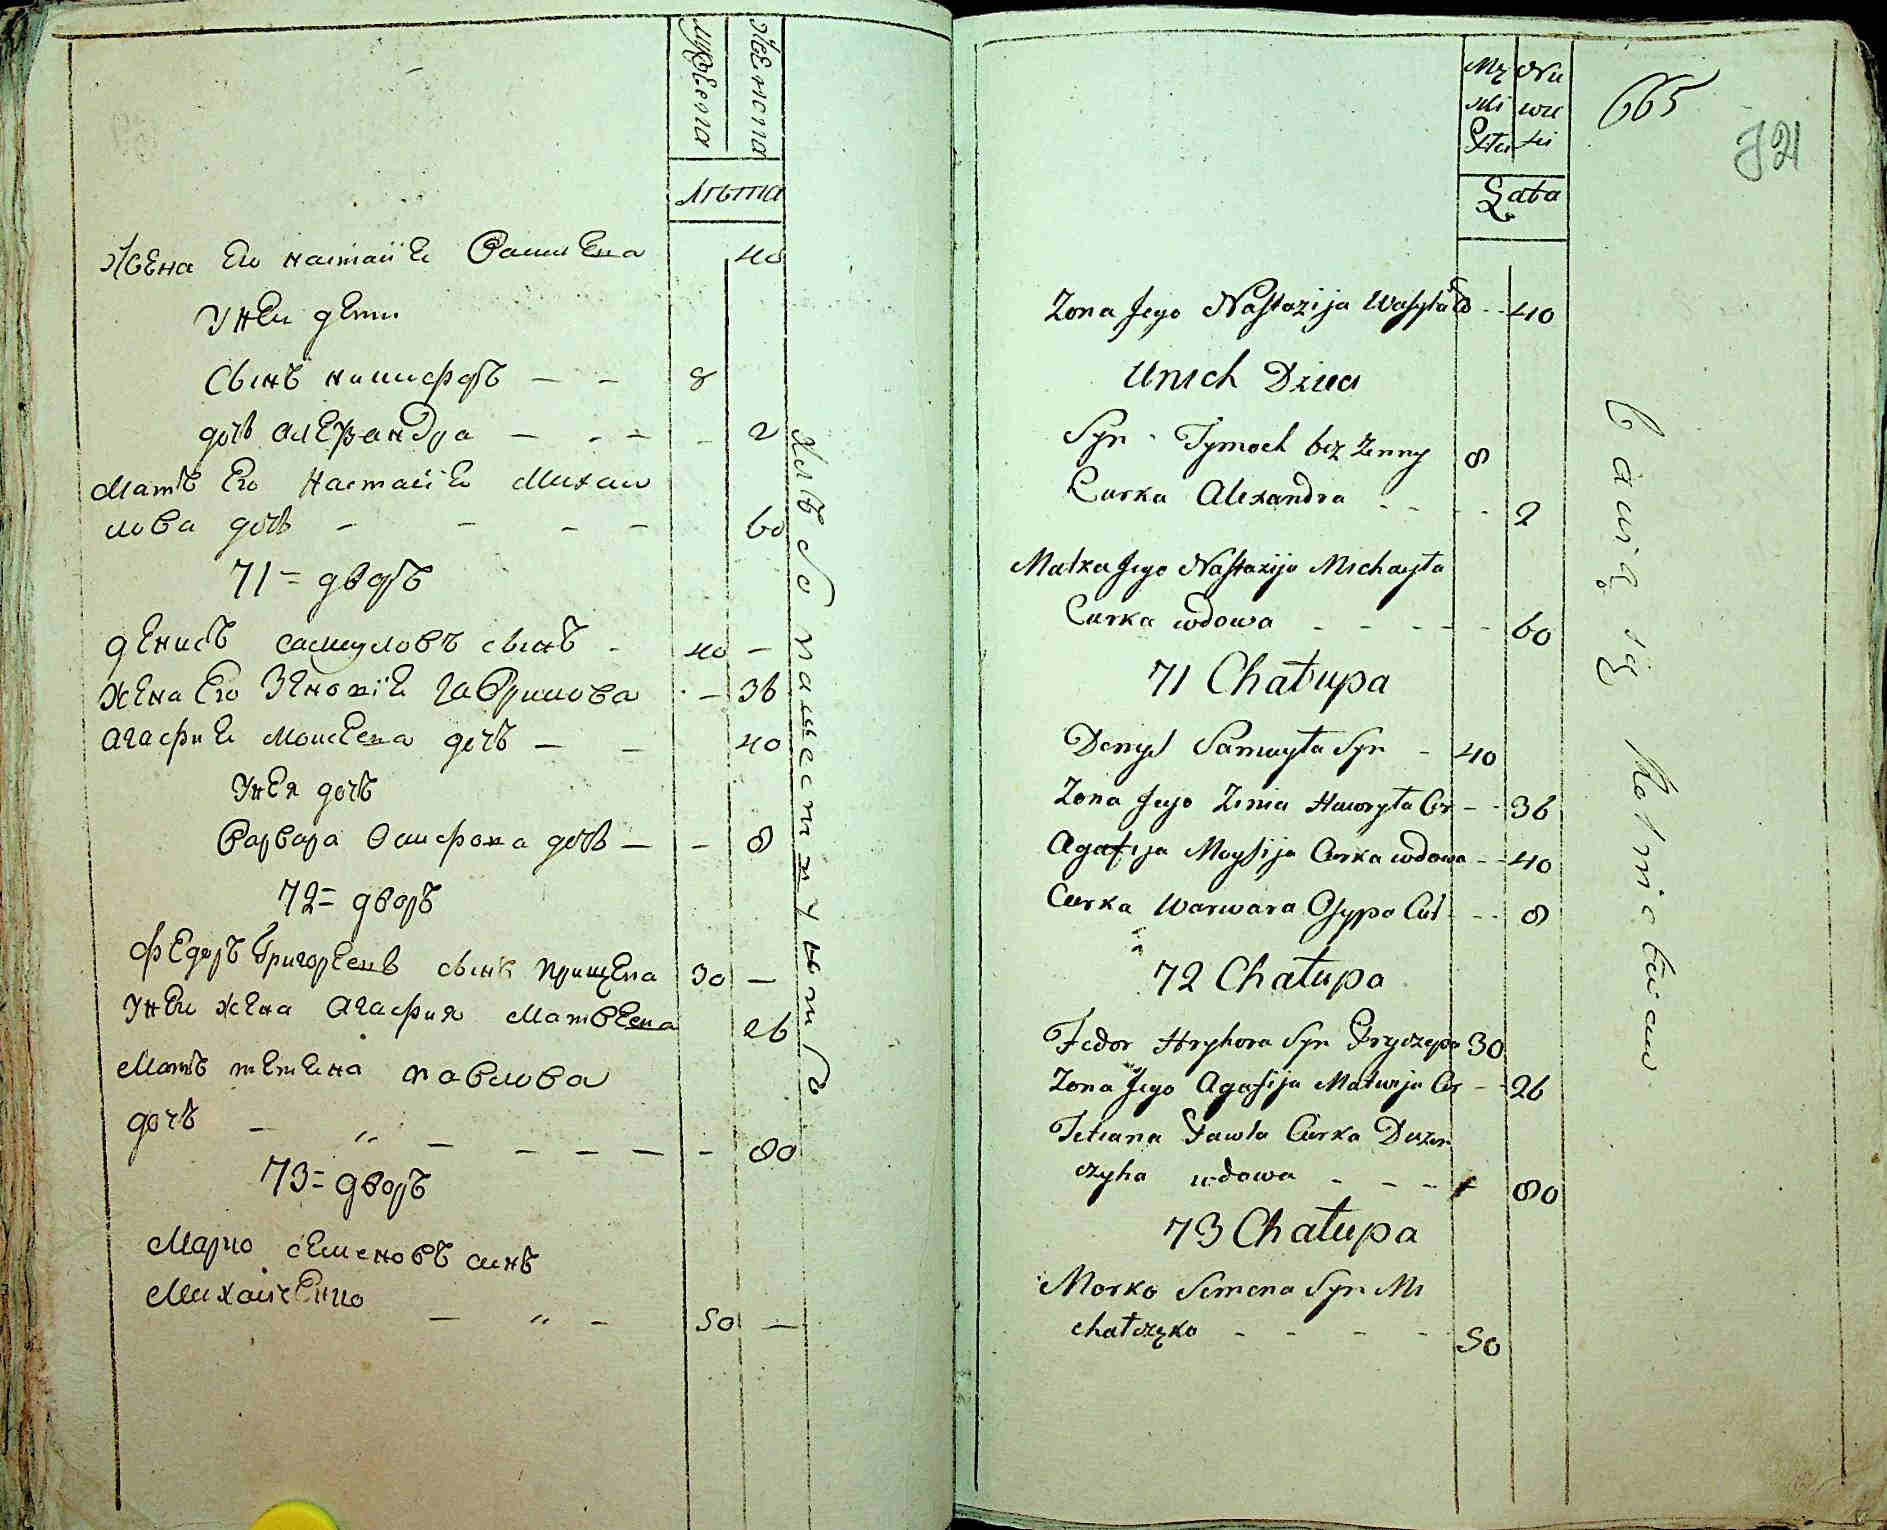 мужеска
женска
Лѣта
Жена Его настасiЕ Василева 40
У нЕи дети
Сынъ никифоръ — — 8
дочь алеѯандра — - - - 2
Мать Его настасiЕ михаи
лова дочь - - - - 60
71 = дворъ
денисъ самуловъ сынъ - 40 —
жена Его Зеновiе гаврилова - — 36
агафие Моисеева дочь — — 40
У неи дочь
варвара осифова дочь — — 8
72 = дворъ
Федоръ Григореевъ сынъ прищепа 30 —
У неи жена агафия Матвеева 26
Мать тетиена павлова
дочь — „ — — — — — 80
73 = дворъ
Марко семеновъ синъ
Михаиченко — „ — 50 —
хлѣбопашествуютъ
Mę
ski
Nie
wie
Lata
665
721
Zona Jego Nastazija Wasyla C 40
Unich Dzieci
Syn - Tymoch bez zenny 8
Curka Alexandra - - - - 2
Matka Jego Nastazija Michayła
Curka wdowa - - - - - 60
71 Chałupa
Denys Samuyła Syn - 40
Zona Jego Zenia Hawryła Cur - - 36
Agafija Moysija Curka wdowa - - 40
Curka Warwara Osypa Cur - - 8
72 Chałupa
Fedor Hryhora Syn Pryszczepa 30
Zona Jego Agafija Matwija Cur - - 26
Tetiana Pawła Curka
czyha wdowa - - - - 80
73 Chałupa
Marko Semena Syn Mi
chałczęko - - - - 50
bawią się Rolnictwem